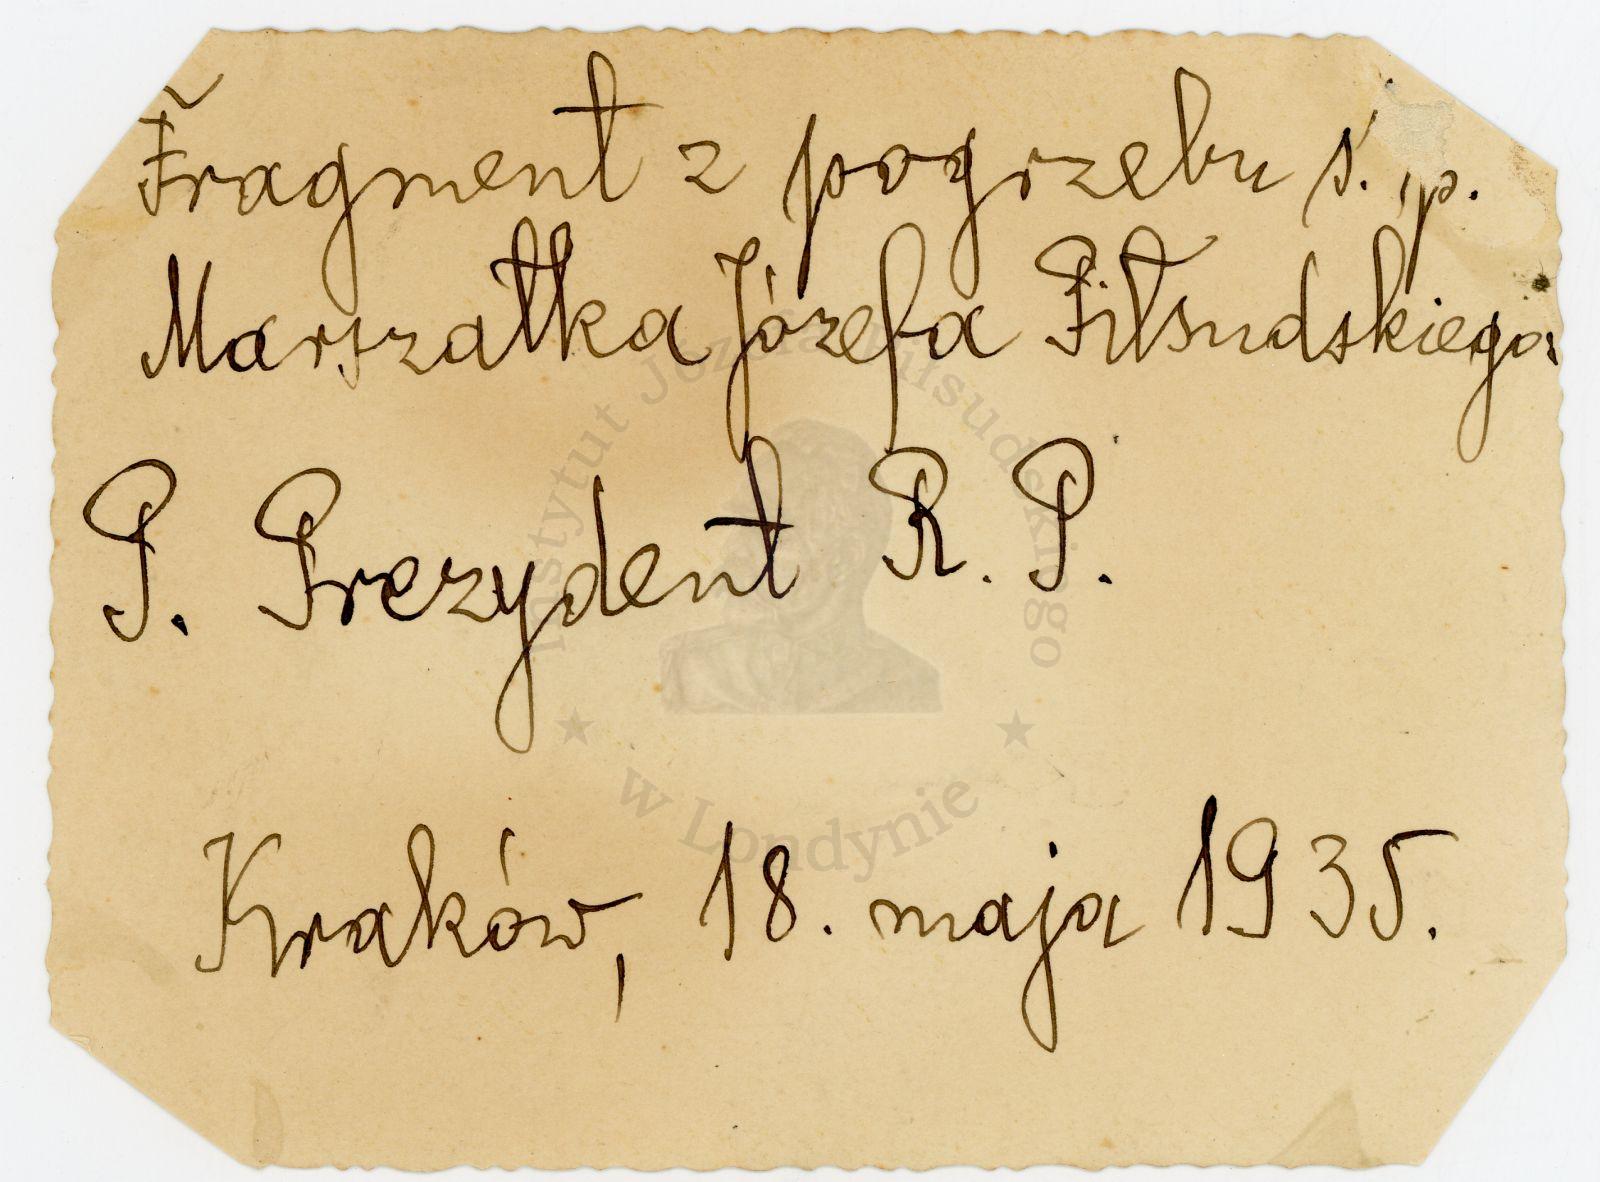 Fragment z pogrzebu ś. p.
Marszałka Józefa Piłsudskiego.
P. Prezydent R. P.
Kraków, 18. maja 1935.
Instytut Józefa Piłsudskiego
w Londynie